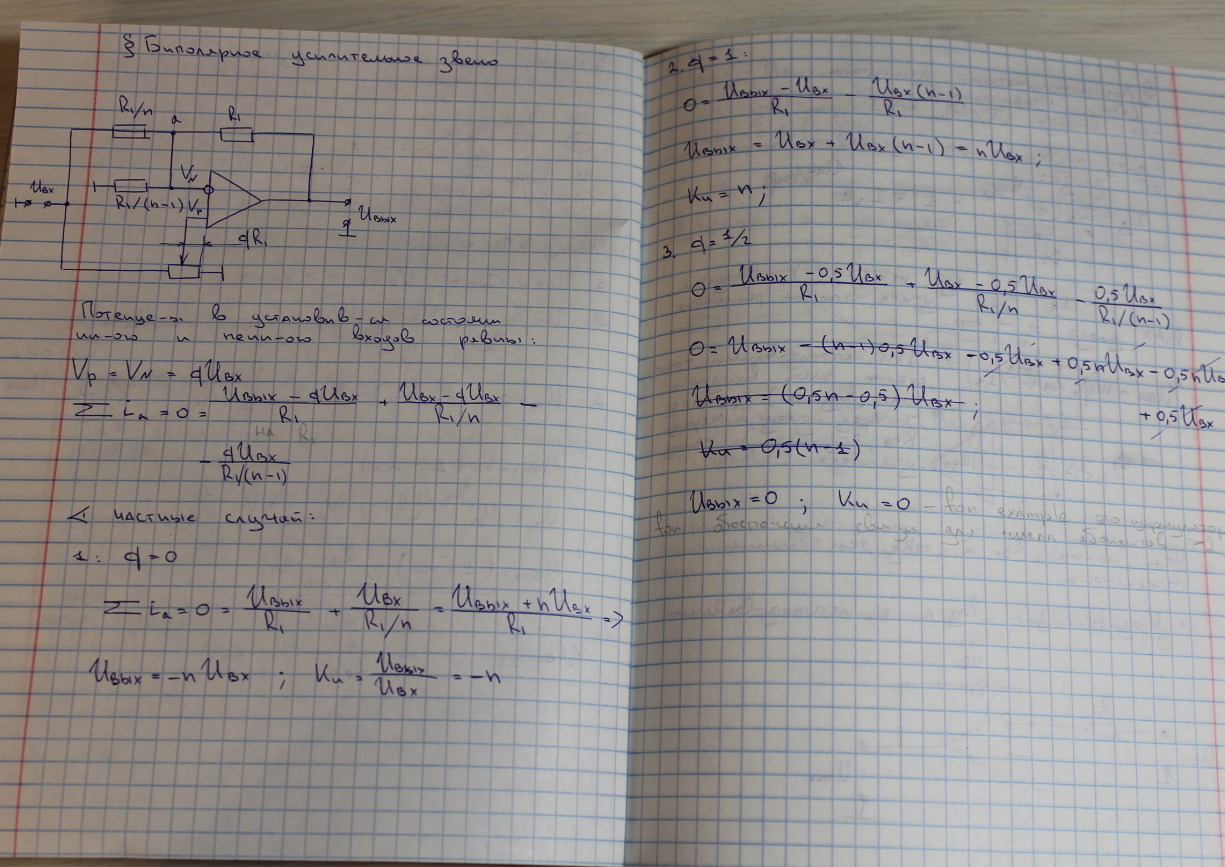 § Биполярное усилительное звено
R₁/n
R₁
a
Uвх
V_N
R₁/(n-1)
V_p
qR₁
Uвых
Потенц-лы в установив-ся состоянии
ин-ого и неин-ого входов равны:
V_p = V_N = qUвх
Σ i_a = 0 = (Uвых - qUвх)/R₁ + (Uвх - qUвх)/(R₁/n) -
на R₁
- qUвх/(R₁/(n-1))
∠ частные случаи:
1: q = 0
Σ i_a = 0 = Uвых/R₁ + Uвх/(R₁/n) = (Uвых + nUвх)/R₁ =>
Uвых = -n Uвх ; Ku = Uвых/Uвх = -n
2. q = 1:
0 = (Uвых - Uвх)/R₁ - Uвх(n-1)/R₁
Uвых = Uвх + Uвх(n-1) = nUвх ;
Ku = n;
3. q = 1/2
0 = (Uвых - 0,5Uвх)/R₁ + (Uвх - 0,5Uвх)/(R₁/n) - 0,5Uвх/(R₁/(n-1))
0 = Uвых - (n-1)0,5Uвх - 0,5Uвх + 0,5nUвх - 0,5nUвх
+ 0,5Uвх
Uвых = (0,5n - 0,5) Uвх ;
Ku = 0,5(n-1)
Uвых = 0 ; Ku = 0 - for example, это
for связи для числа